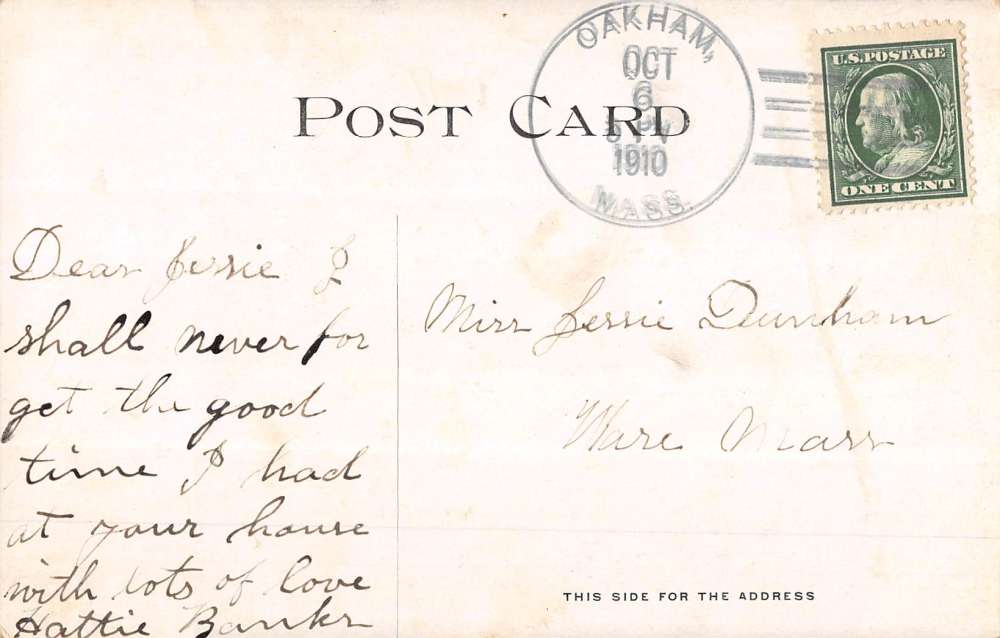 POST CARD
OAKHAM,
OCT
6
1910
MASS.
U.S. POSTAGE
ONE CENT
Dear Jessie I
shall never for
get the good
time I had
at your house
with lots of love
Hattie Banks
Miss Jessie Dunham
Ware Mass
THIS SIDE FOR THE ADDRESS